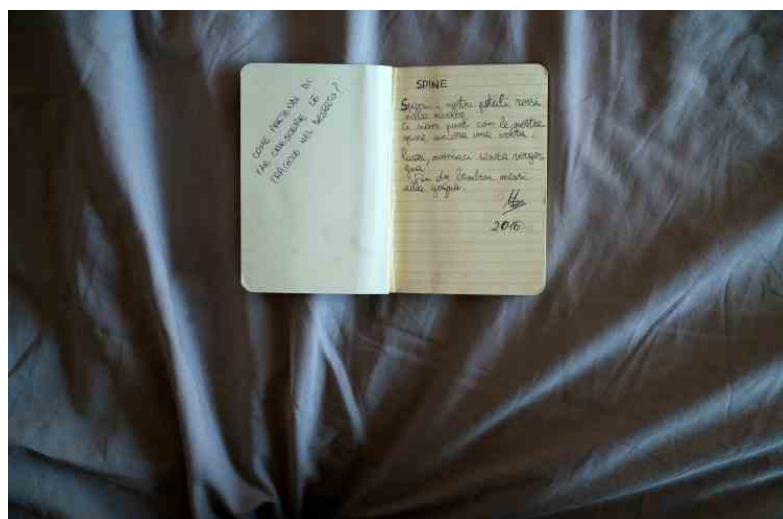 COME PRETENDI DI
FAR CRESCERE LE
FRAGOLE NEL DESERTO?
SPINE
nostri petali rossi
nella
Ci siam punti con le nostre
spine ancora una volta.
senza vergo-
gna.
Fin da bambini messi
alla gogna.
2016